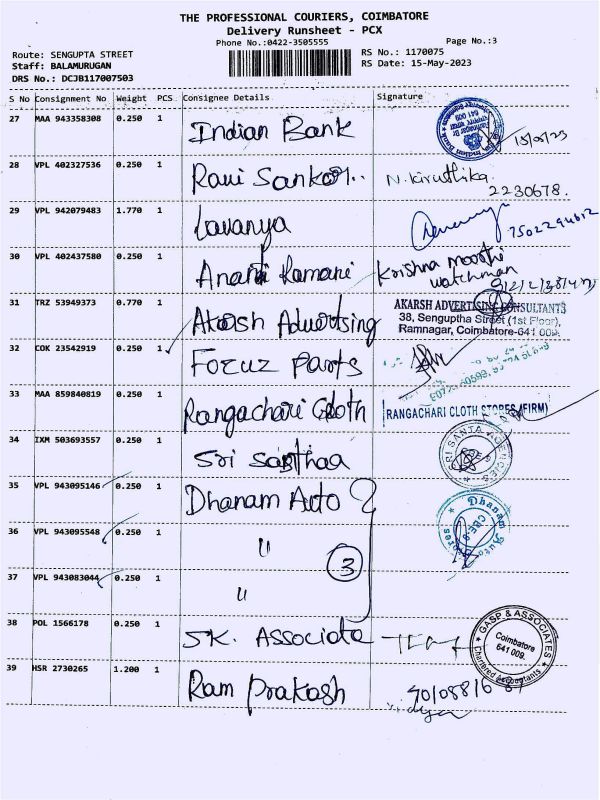 THE PROFESSIONAL COURIERS, COIMBATORE
Delivery Runsheet - PCX
Phone No.:0422-3505555 Page No.:3
Route: SENGUPTA STREET RS No.: 1170075
Staff: BALAMURUGAN RS Date: 15-May-2023
DRS No.: DCJB117007503
S No Consignment No Weight PCS Consignee Details Signature
27 MAA 943358308 0.250 1 Indian Bank
28 VPL 402327536 0.250 1 Ravi Sankar.. N. Kiruthika.
2230678.
29 VPL 942079483 1.770 1 Lavanya
7502294612
30 VPL 402437580 0.250 1 Anand Ramani Krishna moorthi
watchman
31 TRZ 53949373 0.770 1 Akarsh Advertsing AKARSH ADVERTISING CONSULTANTS
38, Senguptha Street (1st Floor),
Ramnagar, Coimbatore-641 009.
32 COK 23542919 0.250 1 Foruz Parts
33 MAA 859840819 0.250 1 Rangachari Cloth RANGACHARI CLOTH STORES (FIRM)
34 IXM 503693557 0.250 1 Sri Sasthaa SRI SANTA AGENCIES
35 VPL 943095146 0.250 1 Dhanam Auto Dhanam Auto Stores
36 VPL 943095548 0.250 1 "
3
37 VPL 943083044 0.250 1 "
38 POL 1566178 0.250 1 SK. Associate GASP & ASSOCIATES
Coimbatore
641 009.
Chartered Accountants
39 HSR 2730265 1.200 1 Ram Prakash